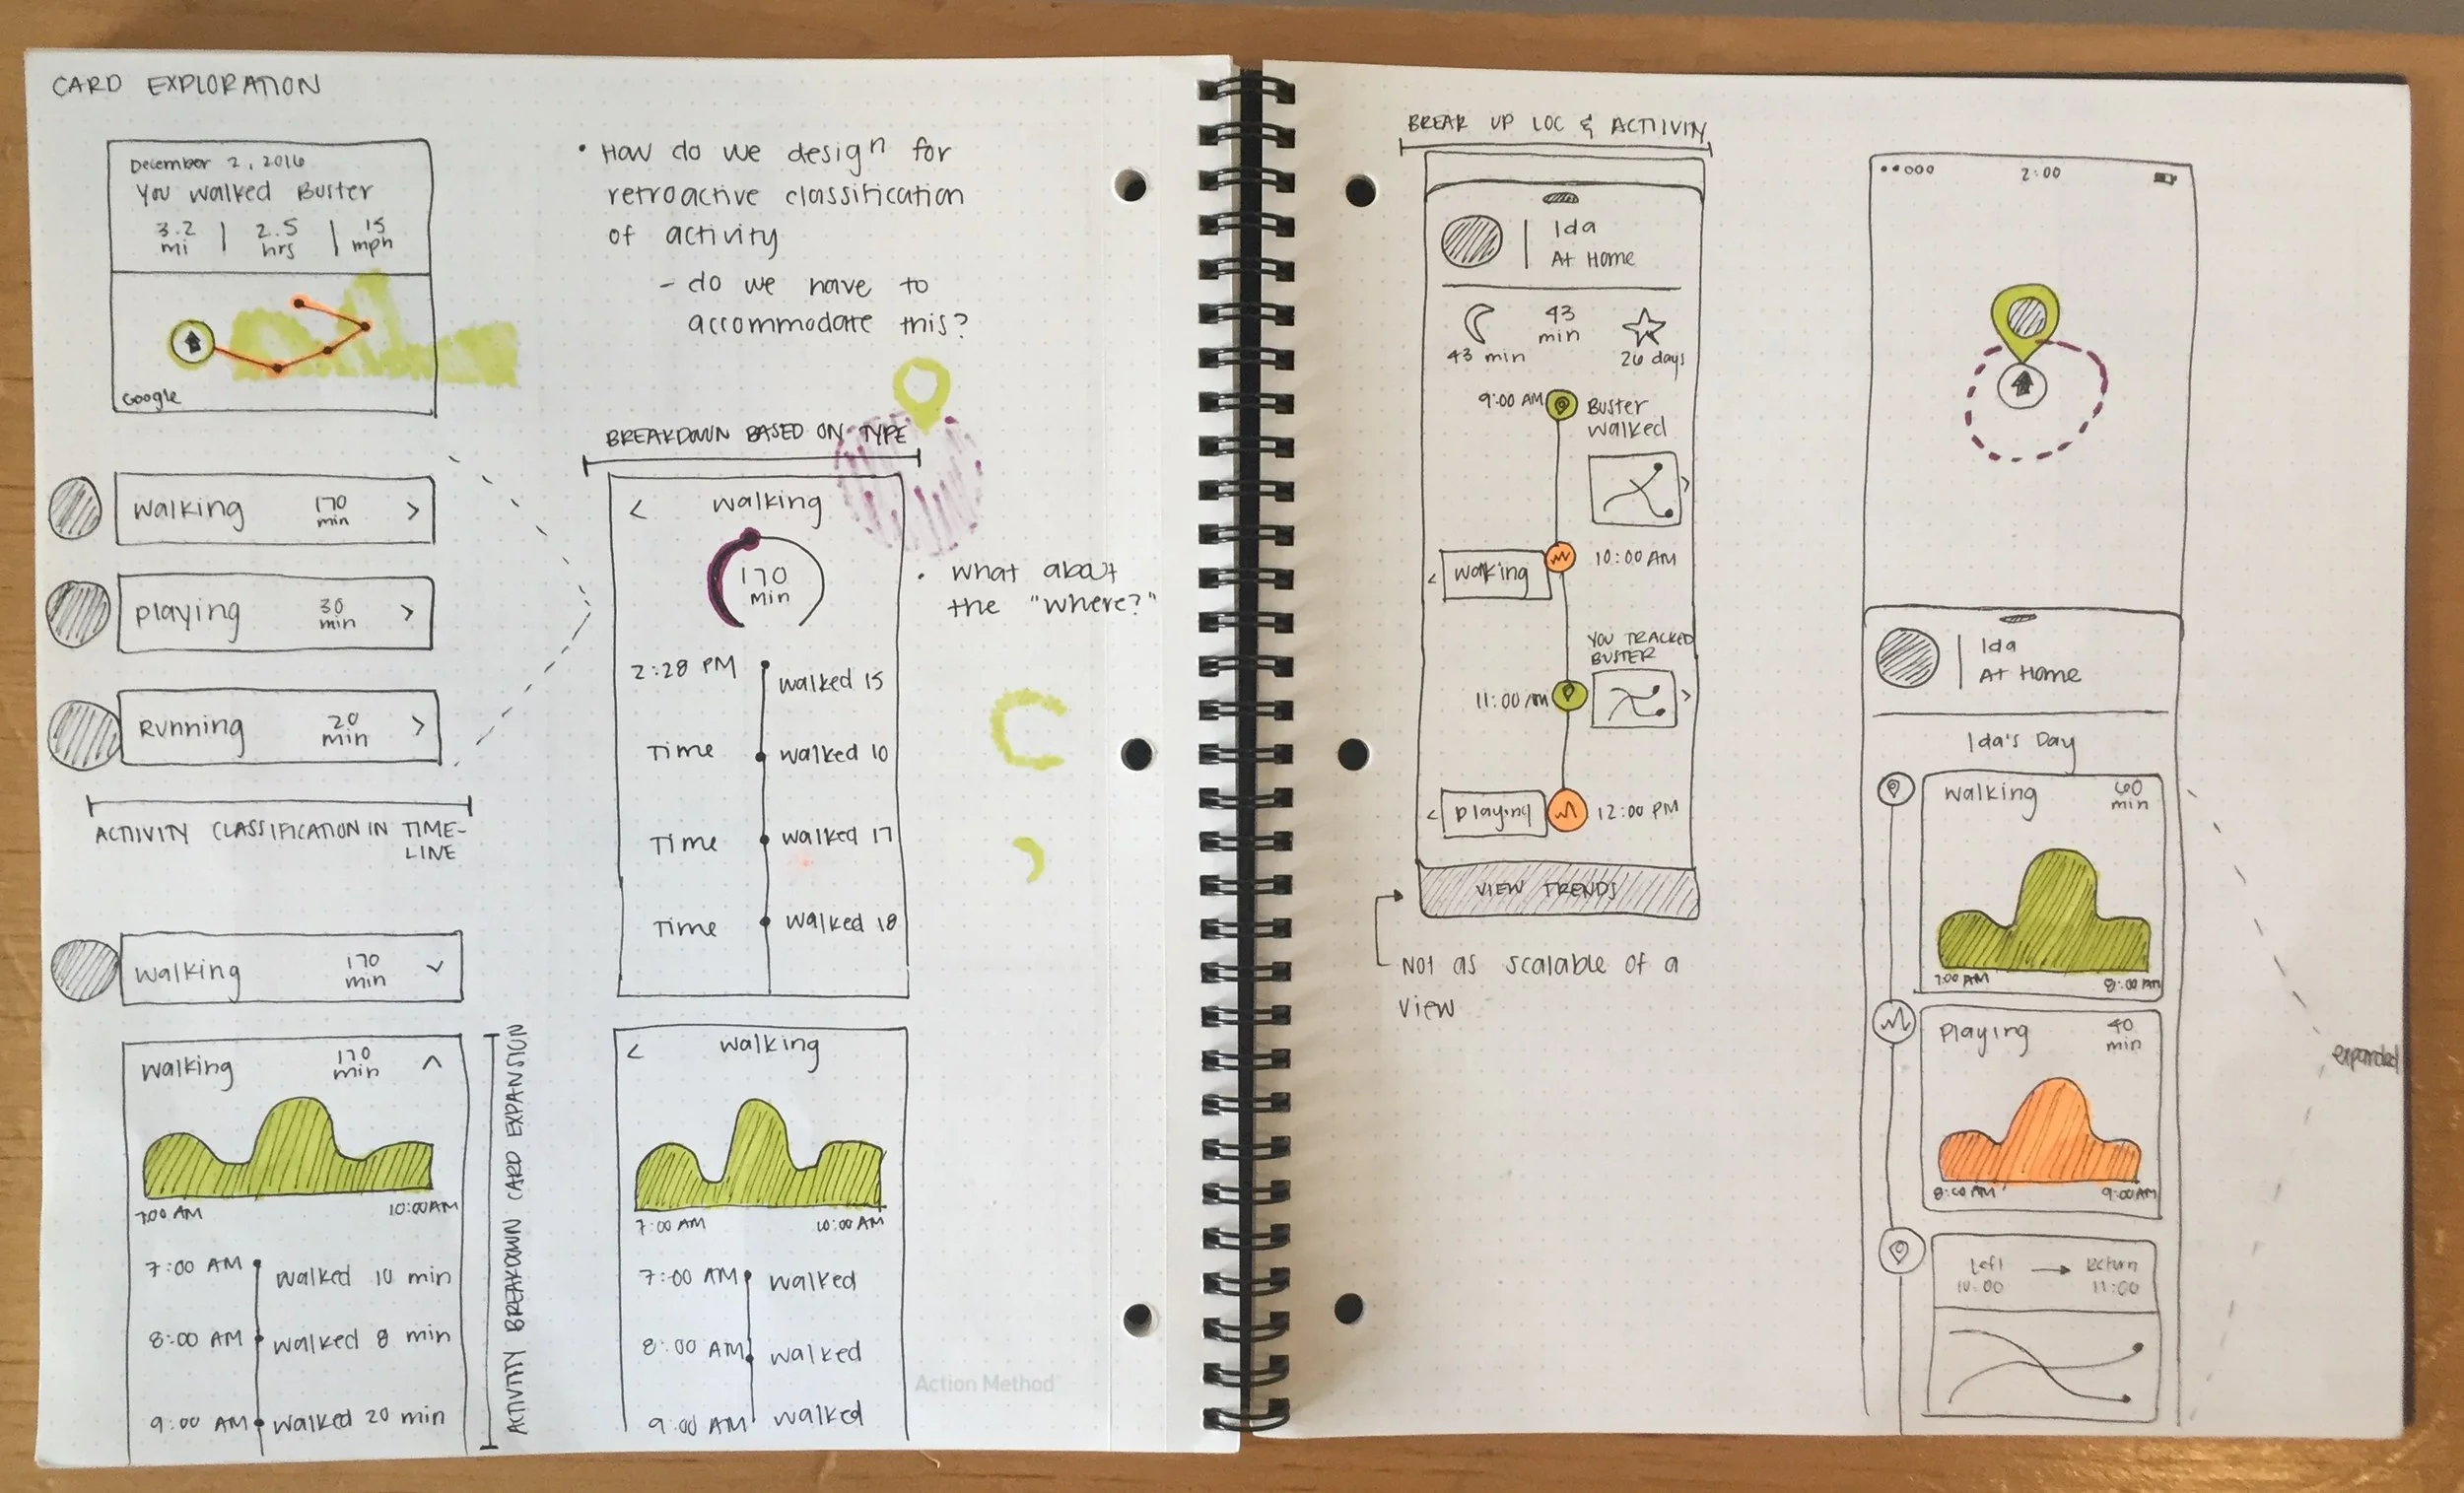 CARD EXPLORATION
December 2, 2016
You walked Buster
3.2 mi | 2.5 hrs | 15 mph
Google
walking 170 min >
playing 30 min >
Running 20 min >
ACTIVITY CLASSIFICATION IN TIME-
LINE
walking 170 min
walking 170 min
7:00 AM 10:00AM
7:00 AM walked 10 min
8:00 AM walked 8 min
9:00 AM walked 20 min
ACTIVITY BREAKDOWN CARD EXPANSION
• How do we design for
retroactive classification
of activity
- do we have to
accommodate this?
BREAKDOWN BASED ON TYPE
< walking
170
min
2:28 PM walked 15
Time walked 10
Time walked 17
Time walked 18
• what about
the "where?"
< walking
7:00 AM 10:00 AM
7:00 AM walked
8:00 AM walked
9:00 AM walked
Action Method
BREAK UP LOC & ACTIIVIY
Ida
At Home
43 min
43 min
26 days
9:00 AM Buster
walked
>
< walking 10:00 AM
YOU TRACKED
BUSTER
11:00 AM >
< playing 12:00 PM
VIEW TRENDS
Not as scalable of a
view
2:00
Ida
At Home
Ida's Day
walking 60 min
7:00 AM 8:00 AM
playing 40 min
8:00 AM 9:00AM
expanded
Left → Return
10:00 11:00